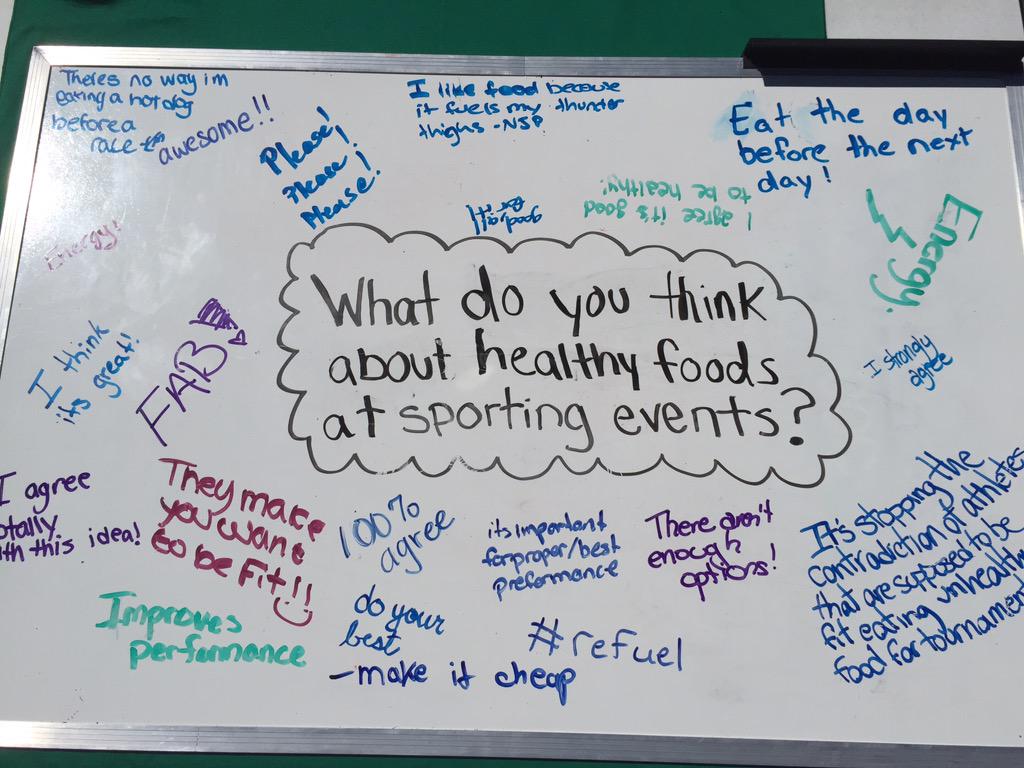 Theres no way im
eating a hotdog
before a
race
awesome!!
Please!
Please!
Please!
I like food because
it fuels my thunder
thighs -NSP
Eat the day
before the next
day!
I agree it's good
to be healthy!
Energy!
Energy.
What do you think
about healthy foods
at sporting events?
I think
its great!
FAB
I strongly
agree
I agree
totally
with this idea!
They make
you want
to be Fit!!
100%
agree
its important
for proper/best
preformance
There aren't
enough
options!
It's stopping the
contradiction of athletes
that are supposed to be
fit eating unhealthy
food for tournament
Improves
performance
do your
best
-make it cheap
#refuel